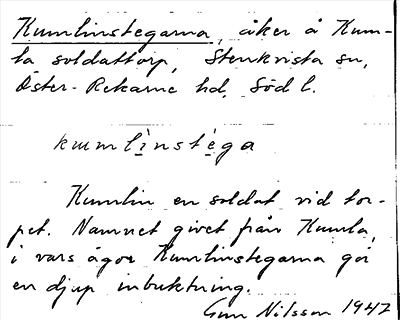 Kumlinstegarna, åker å Kum-
la soldattorp, Stenkvista sn,
Öster-Rekarne hd, Söd l.
kumlinstega
Kumlin en soldat vid tor-
pet. Namnet givet från Kumla,
i vars ägor Kumlinstegarna gör
en djup inbuktning.
Gun Nilsson 1947